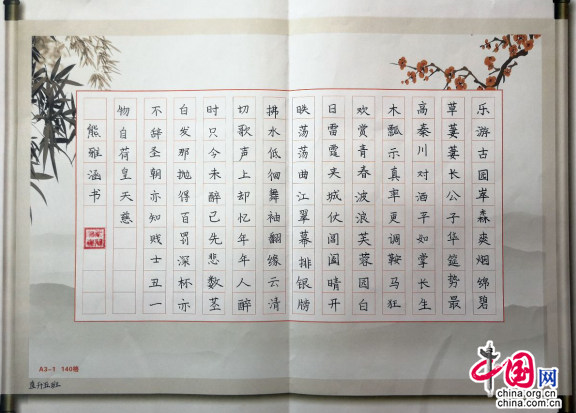 乐游古园崒森爽烟绵碧
草萋萋长公子华筵势最
高秦川对酒平如掌长生
木瓢示真率更调鞍马狂
欢赏青春波浪芙蓉园白
日雷霆夹城仗阊阖晴开
昳荡荡曲江翠幕排银牓
拂水低徊舞袖翻缘云清
切歌声上却忆年年人醉
时只今未醉已先悲数茎
白发那抛得百罚深杯亦
不辞圣朝亦知贱士丑一
物自荷皇天慈
熊雅涵书
A3-1 140格
中国网
china.org.cn
china.com.cn